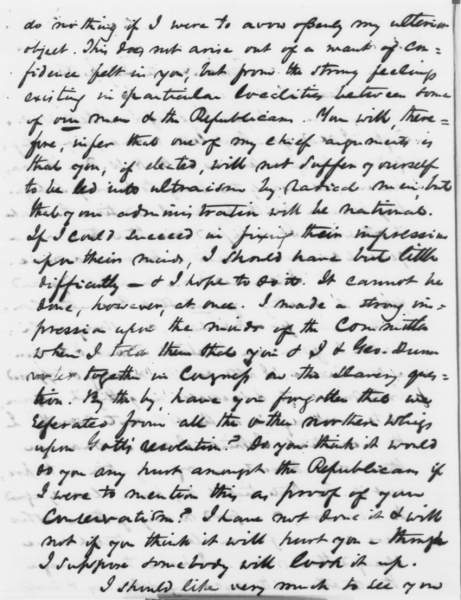 do nothing if I were to avow openly my ulterior
object. This does not arise out of a want of con=
fidence felt in you, but from the strong feelings
existing in particular localities between some
of our men & the Republicans. You will, there=
fore, infer that one of my chief arguments is
that you, if elected, will not suffer yourself
to be led into ultraism by radical men, but
that your administration will be national.
If I could succeed in fixing their impression
upon their minds, I should have but little
difficulty — & I hope to do it. It cannot be
done, however, at once. I made a strong im-
pression upon the minds of the Committee
when I told them that you & I & Geo. Dunn
together in Congress on the slavery ques-
tion. By the by, have you forgotten that was
seperated from all the other northern whigs
upon Gott's resolution? Do you think it would
do you any hurt amongst the Republicans if
I were to mention this as proof of your
Conservatism? I have not done it & will
not if you think it will hurt you – though
I suppose somebody will look it up.
I should like very much to see you